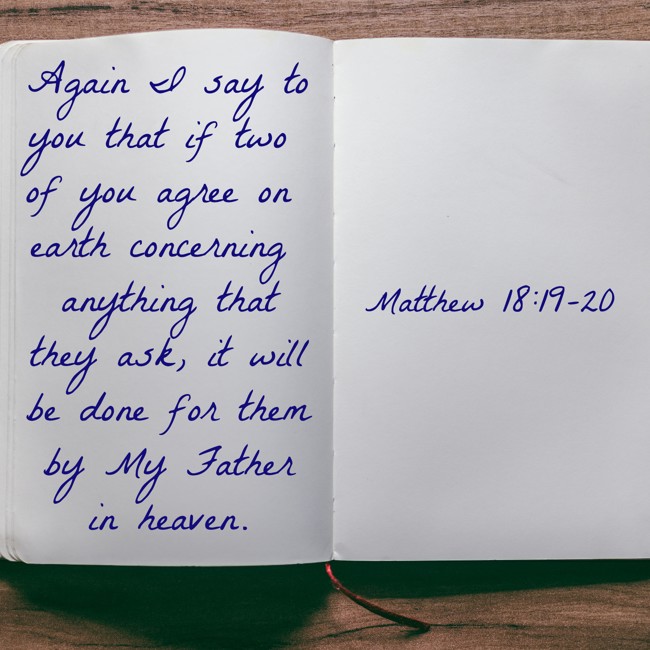 Again I say to
you that if two
of you agree on
earth concerning
anything that
they ask, it will
be done for them
by My Father
in heaven.
Matthew 18:19-20